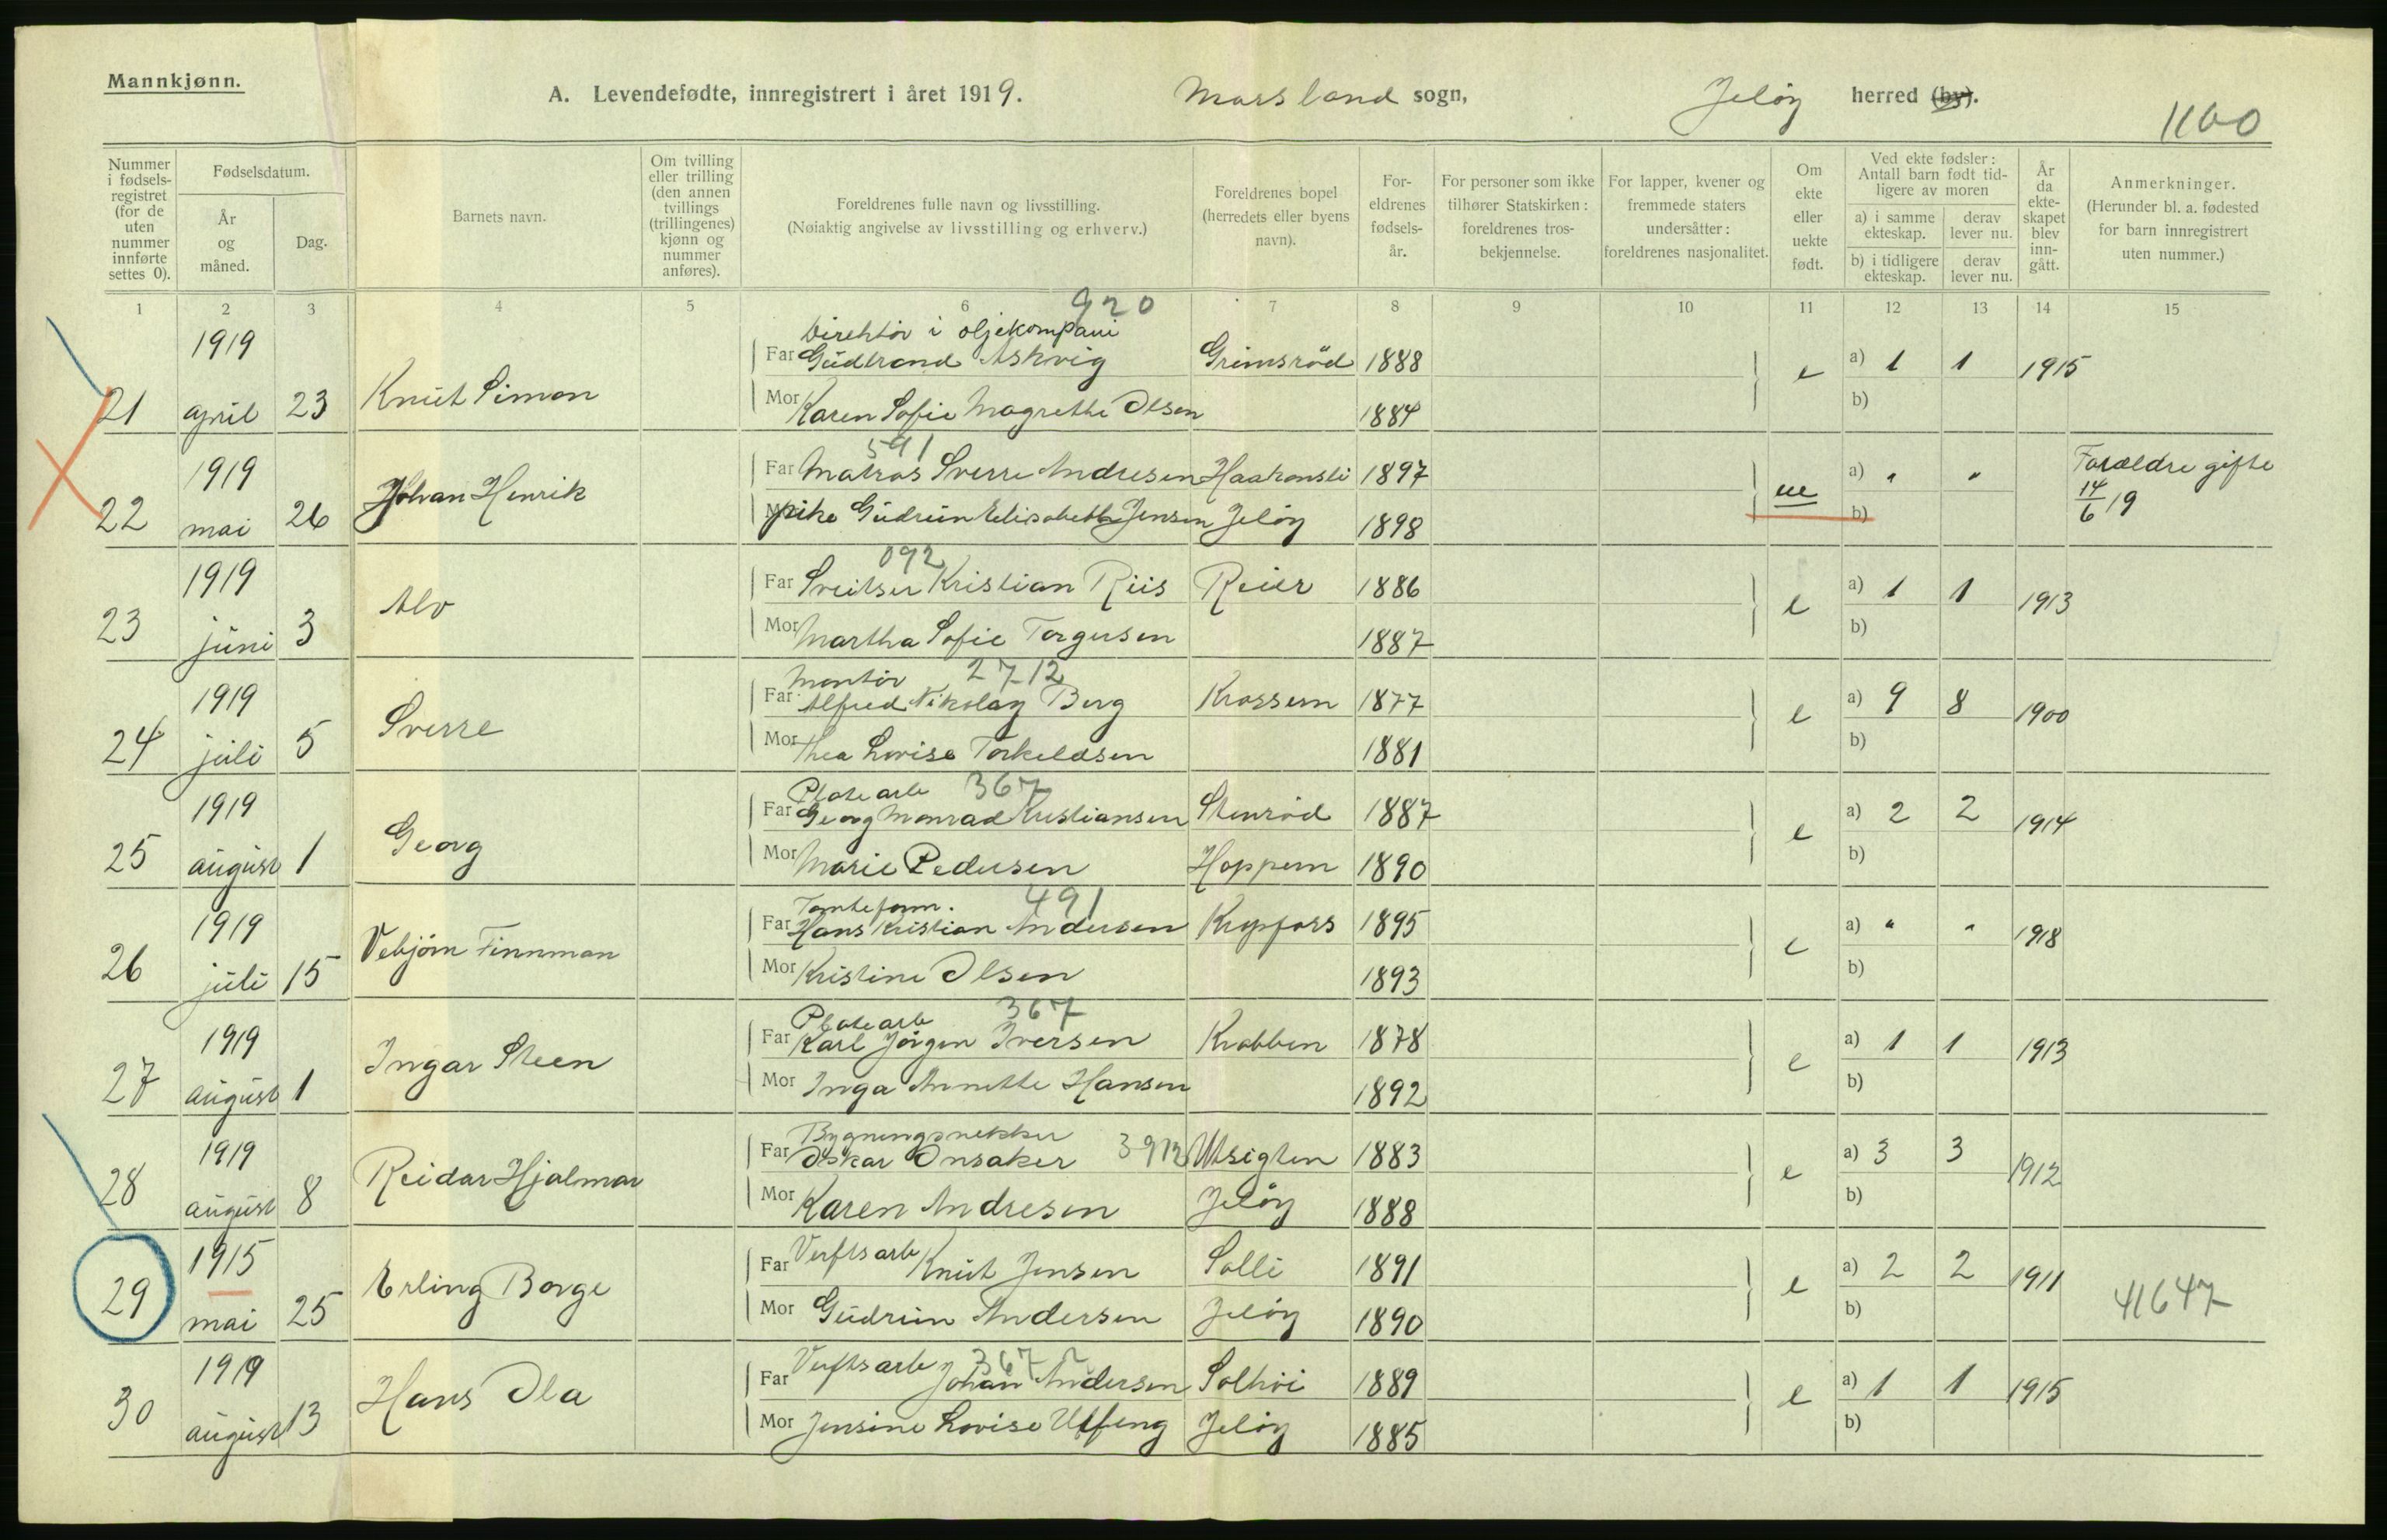 Mannkjønn.
A. Levendefødte, innregistrert i året 1919. Mossland sogn, Jeløy herred (by).
1100
Nummer i fødselsregistret (for de uten nummer innførte settes 0).
Fødselsdatum.
År og måned.
Dag.
Barnets navn.
Om tvilling eller trilling (den annen tvillings (trillingenes) kjønn og nummer anføres).
Foreldrenes fulle navn og livsstilling.
(Nøiaktig angivelse av livsstilling og erhverv.)
Foreldrenes bopel (herredets eller byens navn).
Foreldrenes fødselsår.
For personer som ikke tilhører Statskirken: foreldrenes trosbekjennelse.
For lapper, kvener og fremmede staters undersåtter: foreldrenes nasjonalitet.
Om ekte eller uekte født.
Ved ekte fødsler: Antall barn født tidligere av moren
a) i samme ekteskap. derav lever nu.
b) i tidligere ekteskap. derav lever nu.
År da ekteskapet blev inngått.
Anmerkninger.
(Herunder bl. a. fødested for barn innregistrert uten nummer.)
1 2 3 4 5 6 7 8 9 10 11 12 13 14 15
920
Direktör i oljekompani
21 1919 april 23 Knut Simon Far Gudbrand Askvig Grimsröd 1888 e a) 1 1 1915
Mor Karen Sofie Magrethe Olsen 1884 b)
591
22 1919 mai 26 Johan Henrik Far Matros Sverre Andresen Haakonsli 1897 ue a) " " Foreldre gifte 14/6 19
Mor pike Gudrun Elisabeth Jensen Jeløy 1898 b)
092
23 1919 juni 3 Alv Far Sveitser Kristian Riis Reier 1886 e a) 1 1 1913
Mor Martha Sofie Torgersen 1887 b)
Montör 2712
24 1919 juli 5 Sverre Far Alfred Nikolay Berg Krossern 1877 e a) 9 8 1900
Mor Thea Lovise Torkeldsen 1881 b)
Platearb 367
25 1919 august 1 Georg Far Georg Monrad Kristiansen Stenröd 1887 e a) 2 2 1914
Mor Marie Pedersen Hoppern 1890 b)
Tomteform. 491
26 1919 juli 15 Vebjörn Finnman Far Hans Kristian Andersen Krypfoss 1895 e a) " " 1918
Mor Kristine Olsen 1893 b)
Platearb 367
27 1919 august 1 Ingar Steen Far Karl Jörgen Iversen Krabben 1878 e a) 1 1 1913
Mor Inga Annette Hansen 1892 b)
Bygningsnekker
28 1919 august 8 Reidar Hjalmar Far Oskar Onsaker 3912 Utsigten 1883 e a) 3 3 1912
Mor Karen Andresen Jeløy 1888 b)
29 1915 mai 25 Erling Borge Far Verftsarb Knut Jensen Solli 1891 e a) 2 2 1911
Mor Gudrun Andersen Jeløy 1890 b) 41647
367
30 1919 august 13 Hans Ola Far Verftsarb Johan Andersen Solhöi 1889 e a) 1 1 1915
Mor Jensine Lovise Ulfeng Jeløy 1885 b)